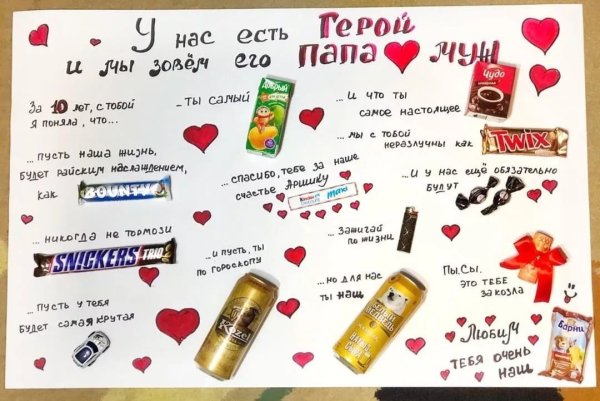 У нас есть ГЕРОЙ
и мы зовём его ПАПА МУЖ
За 10 лет, с тобой
я поняла, что...
- ты самый
Добрый
... и что ты
самое настоящее
Чудо
... мы с тобой
неразлучны как
TWIX
... пусть наша жизнь,
будет райским наслаждением,
как
BOUNTY
...спасибо, тебе за наше
счастье Аришку
Kinder
maxi
... и у нас ещё обязательно
будут
... никогда не тормози
SNICKERS TRIO
... и пусть, ты
по гороскопу
Kozel
...зажигай
по жизни
... но для нас
ты наш
Белый Медведь
Пы.Сы.
это тебе
за козла
... пусть у тебя
будет самая крутая
Любим
тебя очень
наш
Барни